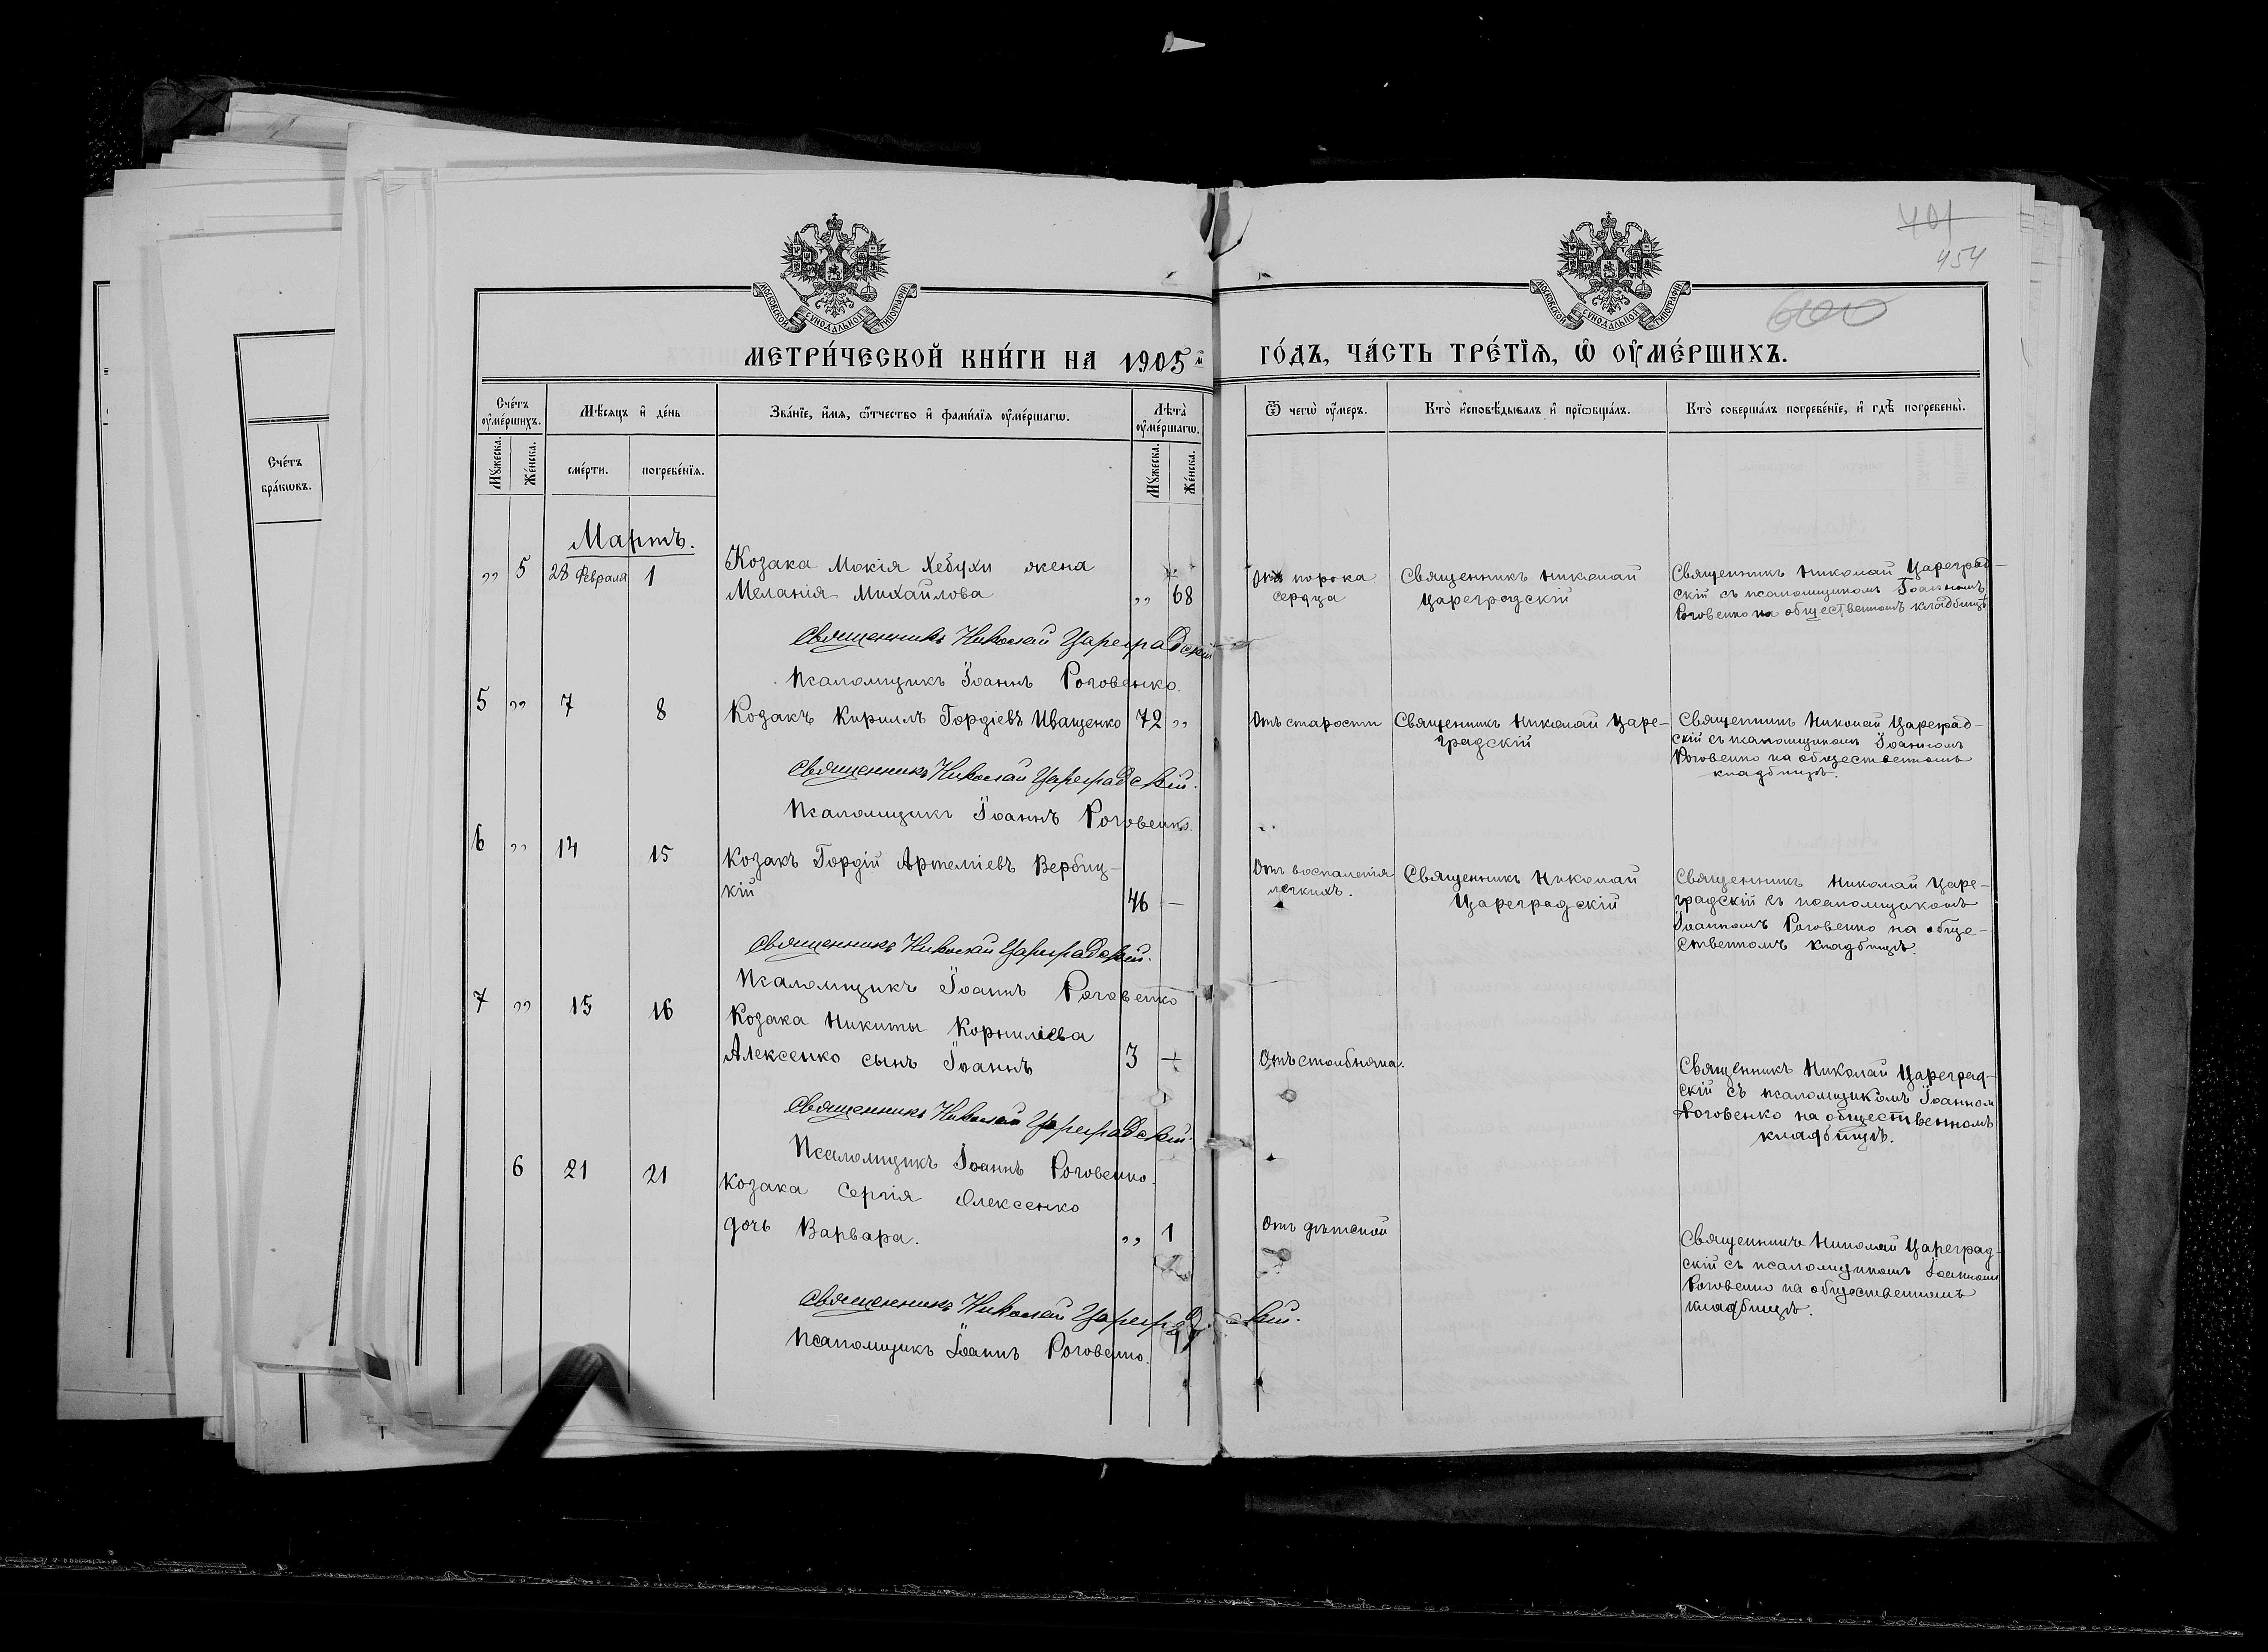 401
454
600
МОСКОВСКОЙ СУНОДАЛЬНОЙ ТИПОГРАФІИ
МОСКОВСКОЙ СУНОДАЛЬНОЙ ТИПОГРАФІИ
МЕТРИ́ЧЕСКОЙ КНИ́ГИ НА 1905й ГО́ДЪ, ЧА́СТЬ ТРЕ́ТЇѦ, Ѡ ОУМЕ́РШИХЪ.
Сче́тъ оуме́ршихъ.
Мꙋ́жеска.
Же́нска.
Мѣ́сяцъ и де́нь
сме́рти.
погребе́нїѧ.
Зва́нїе, и́мѧ, ѻ́тчество и фами́лїѧ оуме́ршагѡ.
Лѣта̀ оуме́ршагѡ.
Мꙋ́жеска.
Же́нска.
Ѿ чегѡ̀ оу́меръ.
Кто̀ исповѣ́дывалъ и прїѡбща́лъ.
Кто̀ соверша́лъ погребе́нїе, и гдѣ̀ погребены̀.
Сче́тъ
бра́кѡвъ.
Мартъ.
„ 5 28 Февраля 1
Козака Мокія Хебухи жена
Меланія Михайлова „ 68
Отъ порока
сердца
Священникъ Николай
Цареградскій
Священникъ Николай Цареград-
скій съ псаломщикомъ Іоанномъ
Роговенко на общественномъ кладбищѣ
Священникъ Николай Цареградскій
Псаломщикъ Іоаннъ Роговенко.
5 „ 7 8 Козакъ Кириллъ Гордіевъ Иващенко 72 „
Отъ старости
Священникъ Николай Царе-
градскій
Священникъ Николай Цареград-
скій съ псаломщикомъ Іоанномъ
Роговенко на общественномъ
кладбищѣ.
Священникъ Николай Цареградскій.
Псаломщикъ Іоаннъ Роговенко.
6 „ 14 15 Козакъ Гордій Артеміевъ Вербиц-
кій 46 —
Отъ воспаленія
легкихъ.
Священникъ Николай
Цареградскій
Священникъ Николай Царе-
градскій съ псаломщикомъ
Іоанномъ Роговенко на обще-
ственномъ кладбищѣ.
Священникъ Николай Цареградскій.
Псаломщикъ Іоаннъ Роговенко
7 „ 15 16 Козака Никиты Корниліева
Алексенко сынъ Іоаннъ 3 —
Отъ столбняка.
Священникъ Николай Цареград-
скій съ псаломщикомъ Іоанном
Роговенко на общественномъ
кладбищѣ.
Священникъ Николай Цареградскій.
Псаломщикъ Іоаннъ Роговенко.
6 21 21 Козака Сергія Олексенко
дочь Варвара. „ 1
Отъ дѣтской
Священникъ Николай Цареград-
скій съ псаломщикомъ Іоанномъ
Роговенко на общественномъ
кладбищѣ.
Священникъ Николай Цареградскій.
Псаломщикъ Іоаннъ Роговенко.